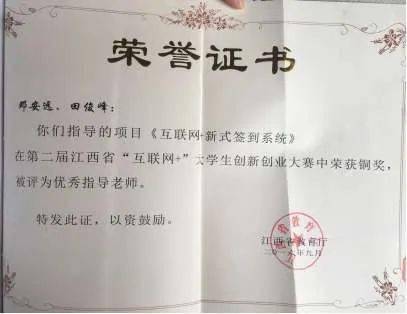 荣誉证书
邓安远、田俊峰：
你们指导的项目《互联网+新式签到系统》
在第二届江西省“互联网+”大学生创新创业大赛中荣获铜奖，
被评为优秀指导老师。
特发此证，以资鼓励。
江西省教育厅
二〇一六年九月